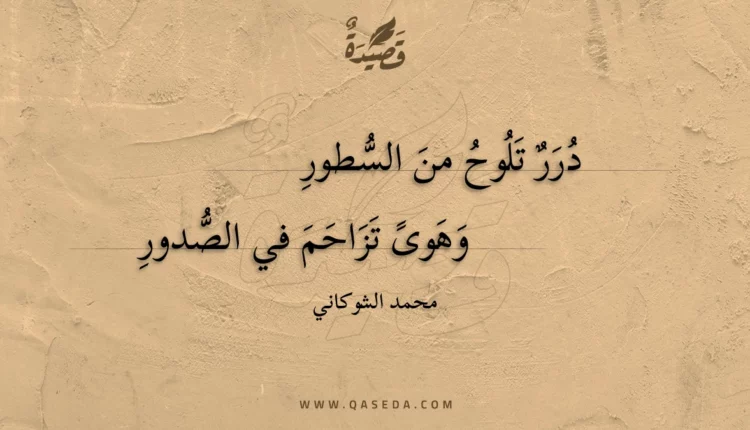 قَصِيْدَةٌ
دُرَرٌ تَلُوحُ منَ السُّطورِ
وَهَوىً تَزَاحَمَ في الصُّدورِ
محمد الشوكاني
WWW.QASEDA.COM